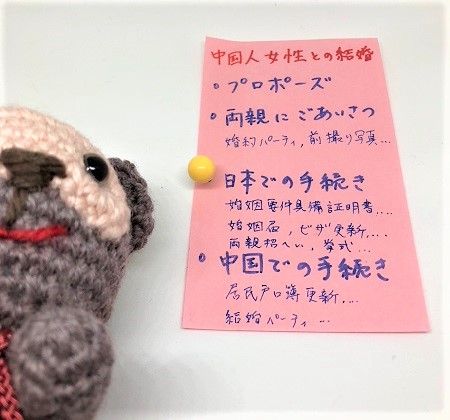 中国人女性との結婚
• プロポーズ
• 両親にごあいさつ
婚約パーティ, 前撮り写真...
日本での手続き
婚姻要件具備証明書....
婚姻届, ビザ更新,...
両親招へい, 挙式...
• 中国での手続き
居民戸口簿更新....
結婚パーティ ...